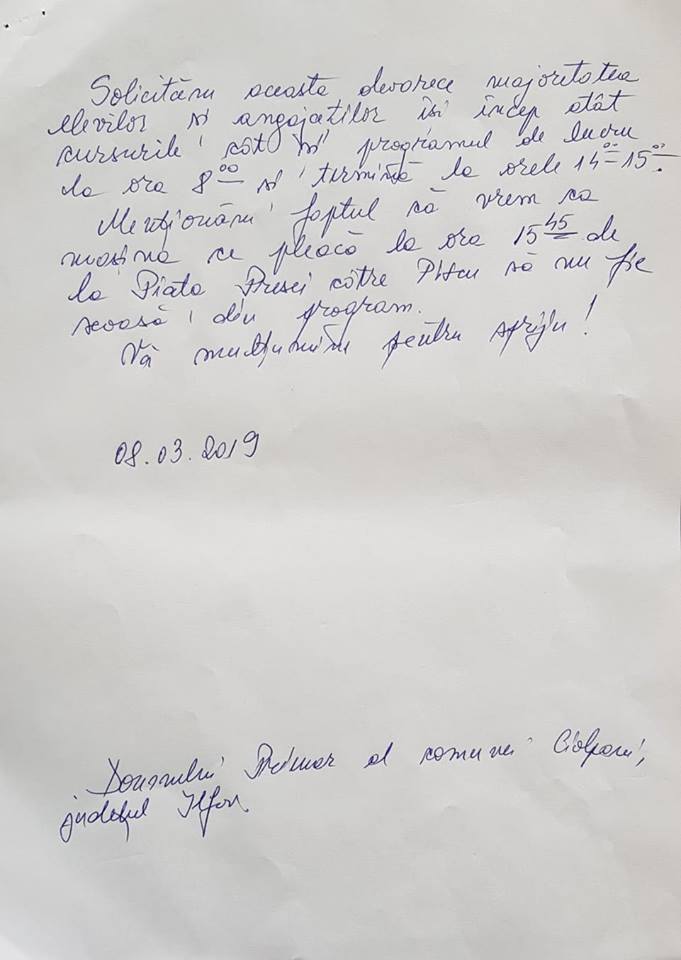 Solicităm aceasta deoarece majoritatea
elevilor și angajaților își încep atât
cursurile cât și programul de lucru
la ora 8⁰⁰ și termină la orele 14⁰⁰-15⁰⁰.
Menționăm faptul că vrem ca
mașina ce pleacă la ora 15⁴⁵ de
la Piata Presei către Piscu să nu fie
scoasă din program.
Vă mulțumim pentru sprijin!
08.03.2019
Domnului Primar al comunei Ciolpani,
județul Ilfov